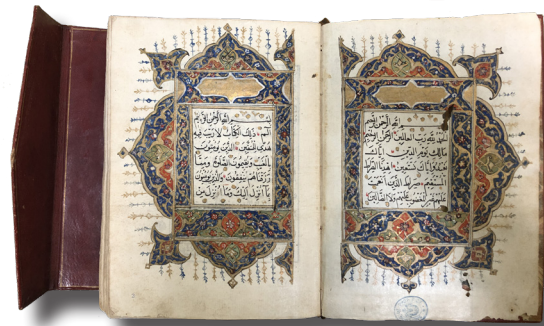 بسم الله الرحمن الرحيم
الحمد لله رب العلمين الرحمن الرحيم
مالك يوم الدين اياك
نعبد واياك نستعين اهدنا الصراط
المستقيم صراط الذين انعمت
عليهم غير المغضوب عليهم ولا الضالين
بسم الله الرحمن الرحيم
الم ذلك الكتاب لا ريب فيه
هدى للمتقين الذين يؤمنون
بالغيب ويقيمون الصلوة ومما
رزقناهم ينفقون والذين يؤمنون
بما انزل اليك وما انزل من